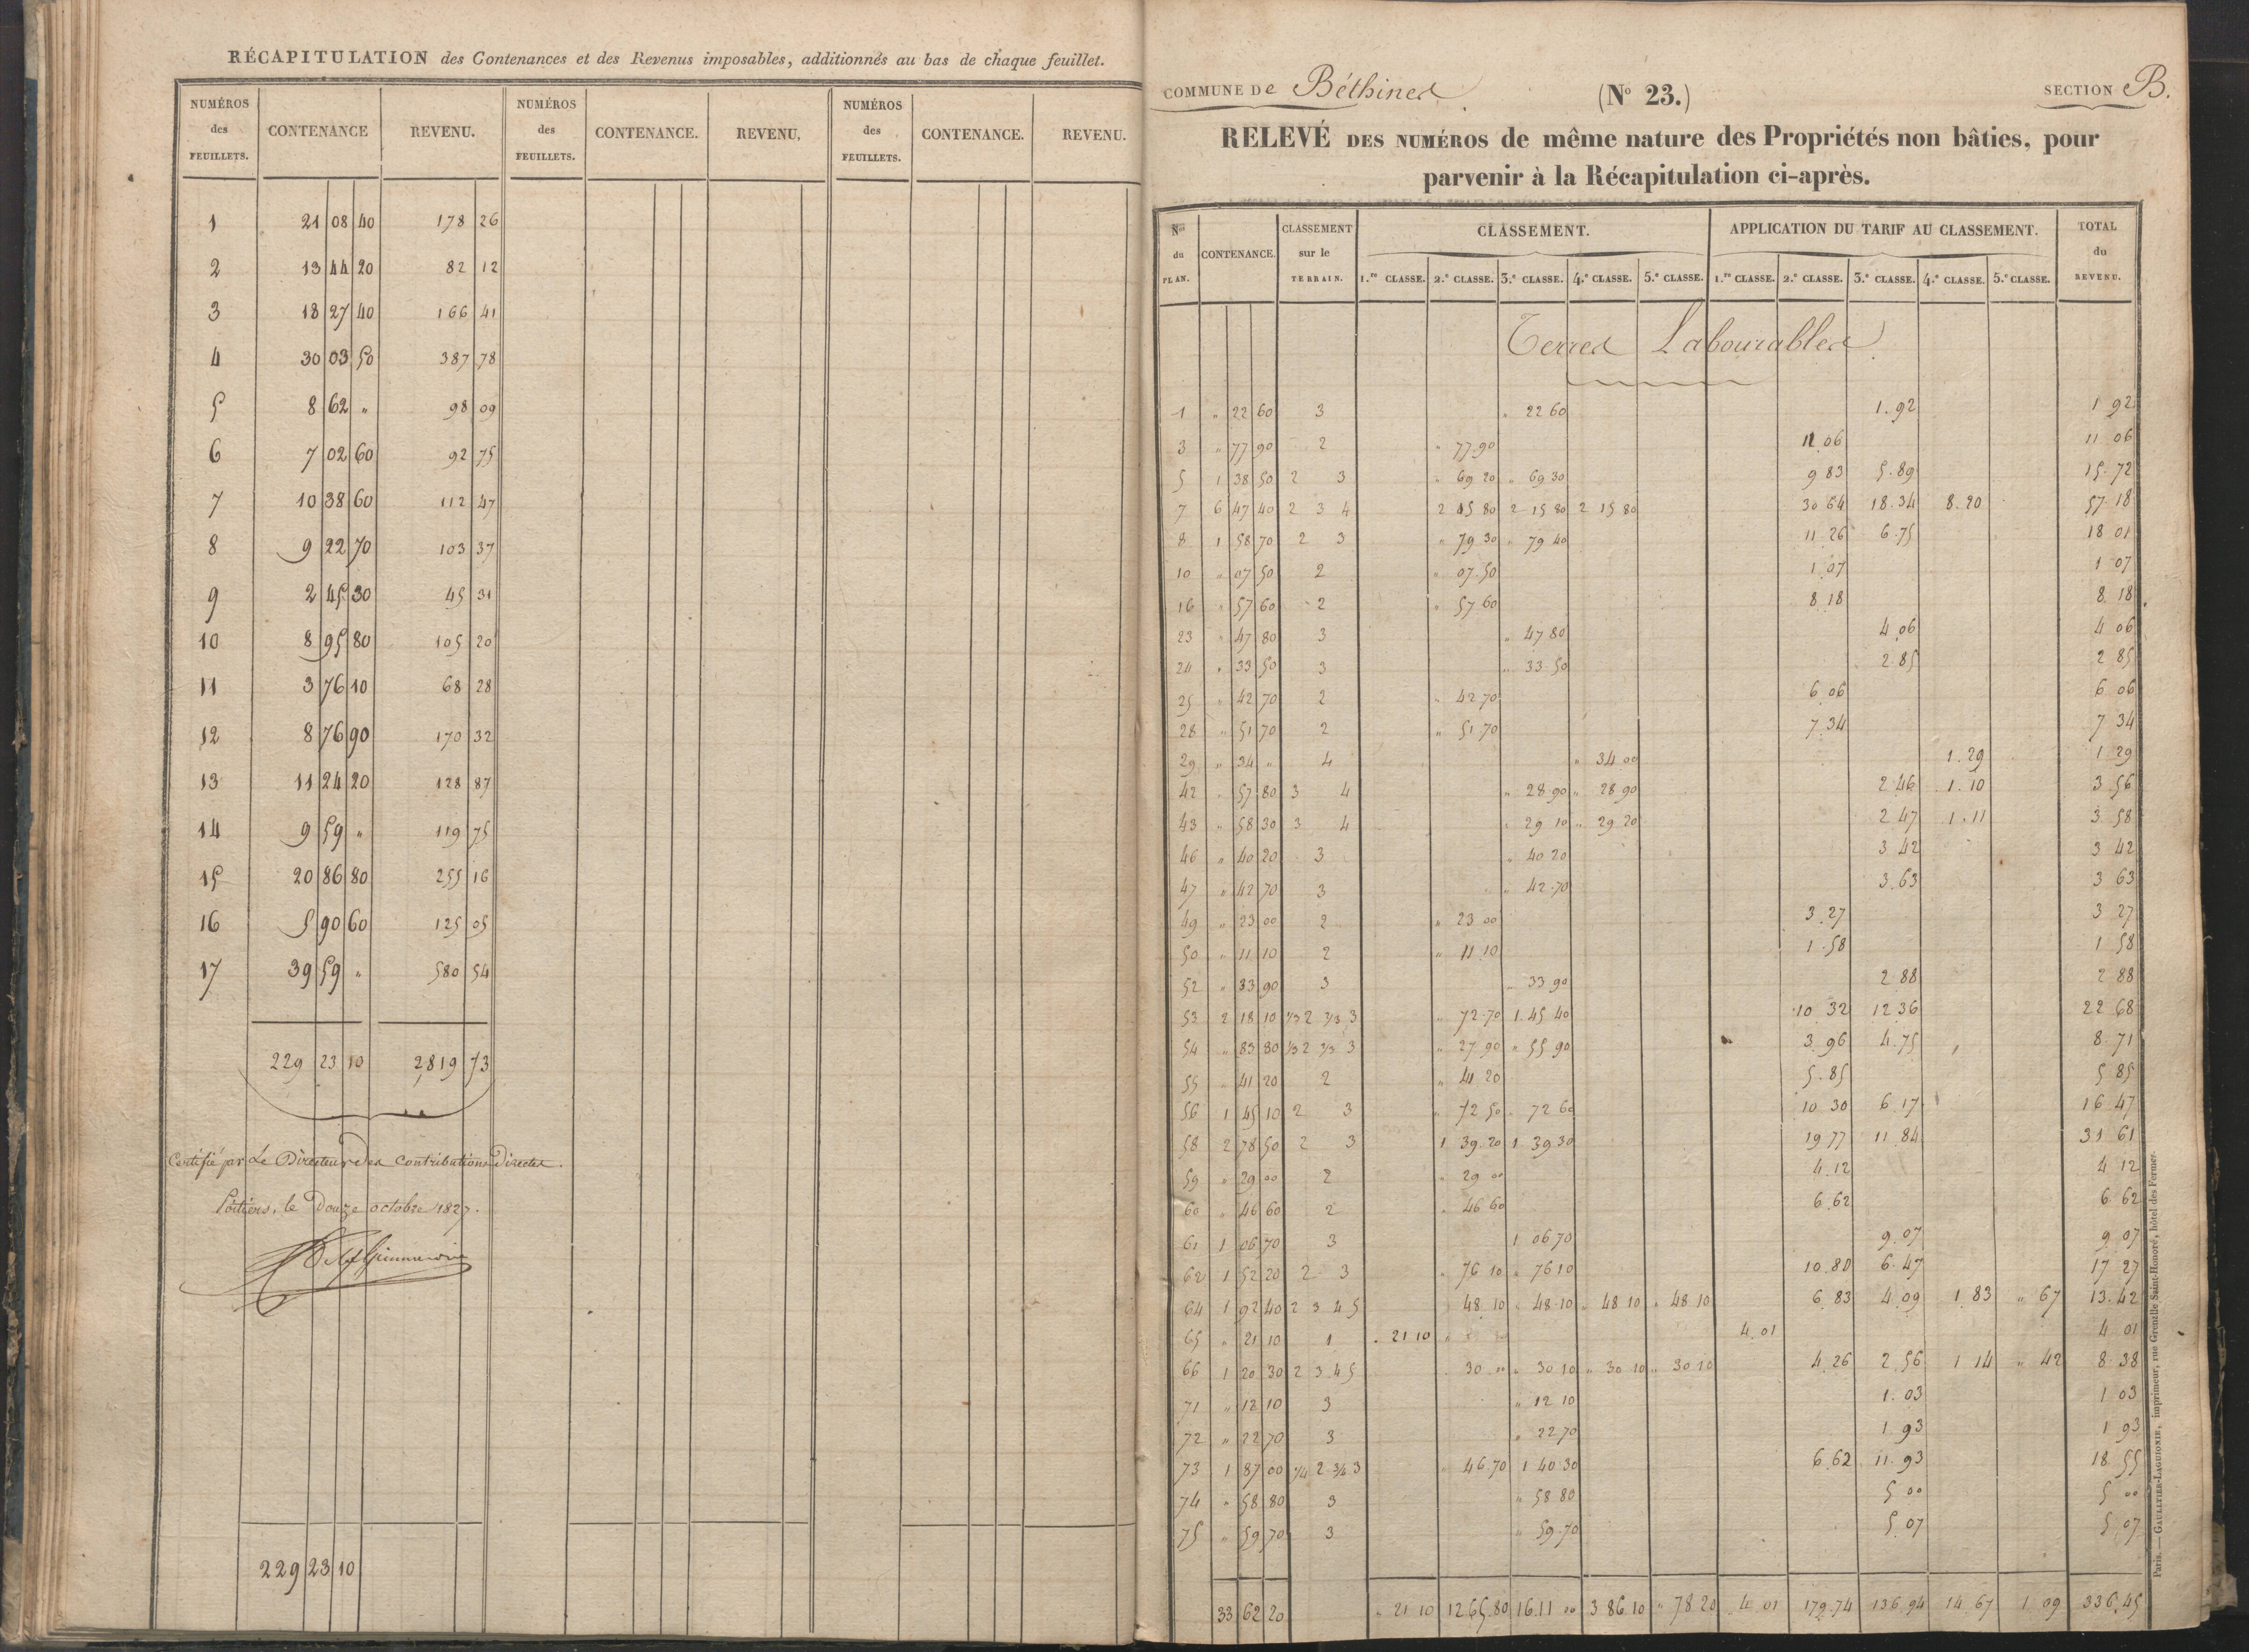 RÉCAPITULATION des Contenances et des Revenus imposables, additionnés au bas de chaque feuillet.
NUMÉROS des FEUILLETS. CONTENANCE REVENU. NUMÉROS des FEUILLETS. CONTENANCE. REVENU, NUMÉROS des FEUILLETS. CONTENANCE. REVENU.
1 21 08 40 178 26
2 13 44 20 82 12
3 18 27 40 166 41
4 30 03 50 387 78
5 8 62 " 98 09
6 7 02 60 92 75
7 10 38 60 112 47
8 9 22 70 103 37
9 2 45 30 45 31
10 8 95 80 105 20
11 3 76 10 68 28
12 8 76 90 170 32
13 11 24 20 128 87
14 9 59 " 119 75
15 20 86 80 255 16
16 5 90 60 125 05
17 39 59 " 580 54
229 23 10 2,819 73
Certifié par Le Directeur des Contributions Directes.
Poitiers, le Douze octobre 1827.
229 23 10
COMMUNE De Béthines (No 23.) SECTION B.
RELEVÉ DES NUMÉROS de même nature des Propriétés non bâties, pour
parvenir à la Récapitulation ci-après.
Nos du PLAN. CONTENANCE. CLASSEMENT sur le TERRAIN. CLASSEMENT. APPLICATION DU TARIF AU CLASSEMENT. TOTAL du REVENU.
1.re CLASSE. 2.e CLASSE. 3.e CLASSE. 4.e CLASSE. 5.e CLASSE. 1.re CLASSE. 2.e CLASSE. 3.e CLASSE. 4.e CLASSE. 5.e CLASSE.
Terres Labourables
1 " 22 60 3 " 22 60 1.92 1 92
3 " 77 90 2 " 77.90 11 06 11 06
5 1 38 50 2 3 " 69 20 " 69 30 9 83 5.89 15.72
7 6 47 40 2 3 4 2 15 80 2 15 80 2 15 80 30 64 18.34 8.20 57 18
8 1 58 70 2 3 " 79 30 " 79 40 11 26 6.75 18 01
10 " 07 50 2 " 07.50 1 07 1 07
16 " 57 60 2 " 57 60 8 18 8 18
23 " 47 80 3 " 47 80 4 06 4 06
24 " 33 50 3 " 33 50 2.85 2 85
25 " 42 70 2 " 42 70 6 06 6 06
28 " 51 70 2 " 51 70 7.34 7 34
29 " 34 " 4 " 34 00 1.29 1 29
42 " 57 80 3 4 " 28 90 " 28 90 2 46 1.10 3 56
43 " 58 30 3 4 " 29 10 " 29 20 2 47 1.11 3 58
46 " 40 20 3 " 40 20 3 42 3 42
47 " 42 70 3 " 42.70 3.63 3 63
49 " 23 00 2 " 23 00 3.27 3 27
50 " 11 10 2 " 11 10 1.58 1 58
52 " 33 90 3 " 33 90 2 88 2 88
53 2 18 10 1/3 2 2/3 3 " 72.70 1.45 40 10 32 12 36 22 68
54 " 83 80 1/3 2 2/3 3 " 27 90 " 55 90 3 96 4.75 8.71
55 " 41 20 2 " 41 20 5.85 5 85
56 1 45 10 2 3 " 72 50 " 72 60 10 30 6 17 16 47
58 2 78 50 2 3 1 39.20 1 39 30 19 77 11 84 31 61
59 " 29 00 2 " 29 00 4.12 4 12
60 " 46 60 2 " 46 60 6.62 6 62
61 1 06 70 3 1 06 70 9.07 9 07
62 1 52 20 2 3 " 76 10 " 76 10 10.80 6.47 17 27
64 1 92 40 2 3 4 5 48 10 " 48.10 " 48 10 " 48 10 6 83 4 09 1 83 " 67 13.42
65 " 21 10 1 " 21 10 4.01 4 01
66 1 20 30 2 3 4 5 30 " " 30 10 " 30 10 " 30 10 4.26 2.56 1 14 " 42 8.38
71 " 12 10 3 " 12 10 1.03 1 03
72 " 22 70 3 " 22 70 1 93 1 93
73 1 87 00 1/4 2 3/4 3 " 46.70 1 40.30 6.62 11.93 18.55
74 " 58 80 3 " 58 80 5 00 5 00
75 " 59 70 3 " 59.70 5.07 5.07
33 62 20 " 21 10 12 65.80 16.11 00 3 86 10 " 78 20 4 01 179.74 136 94 14 67 1 09 336.45
Paris. — GAULTIER-LAGUIONIE, imprimeur, rue Grenelle Saint-Honoré, hôtel des Fermes.